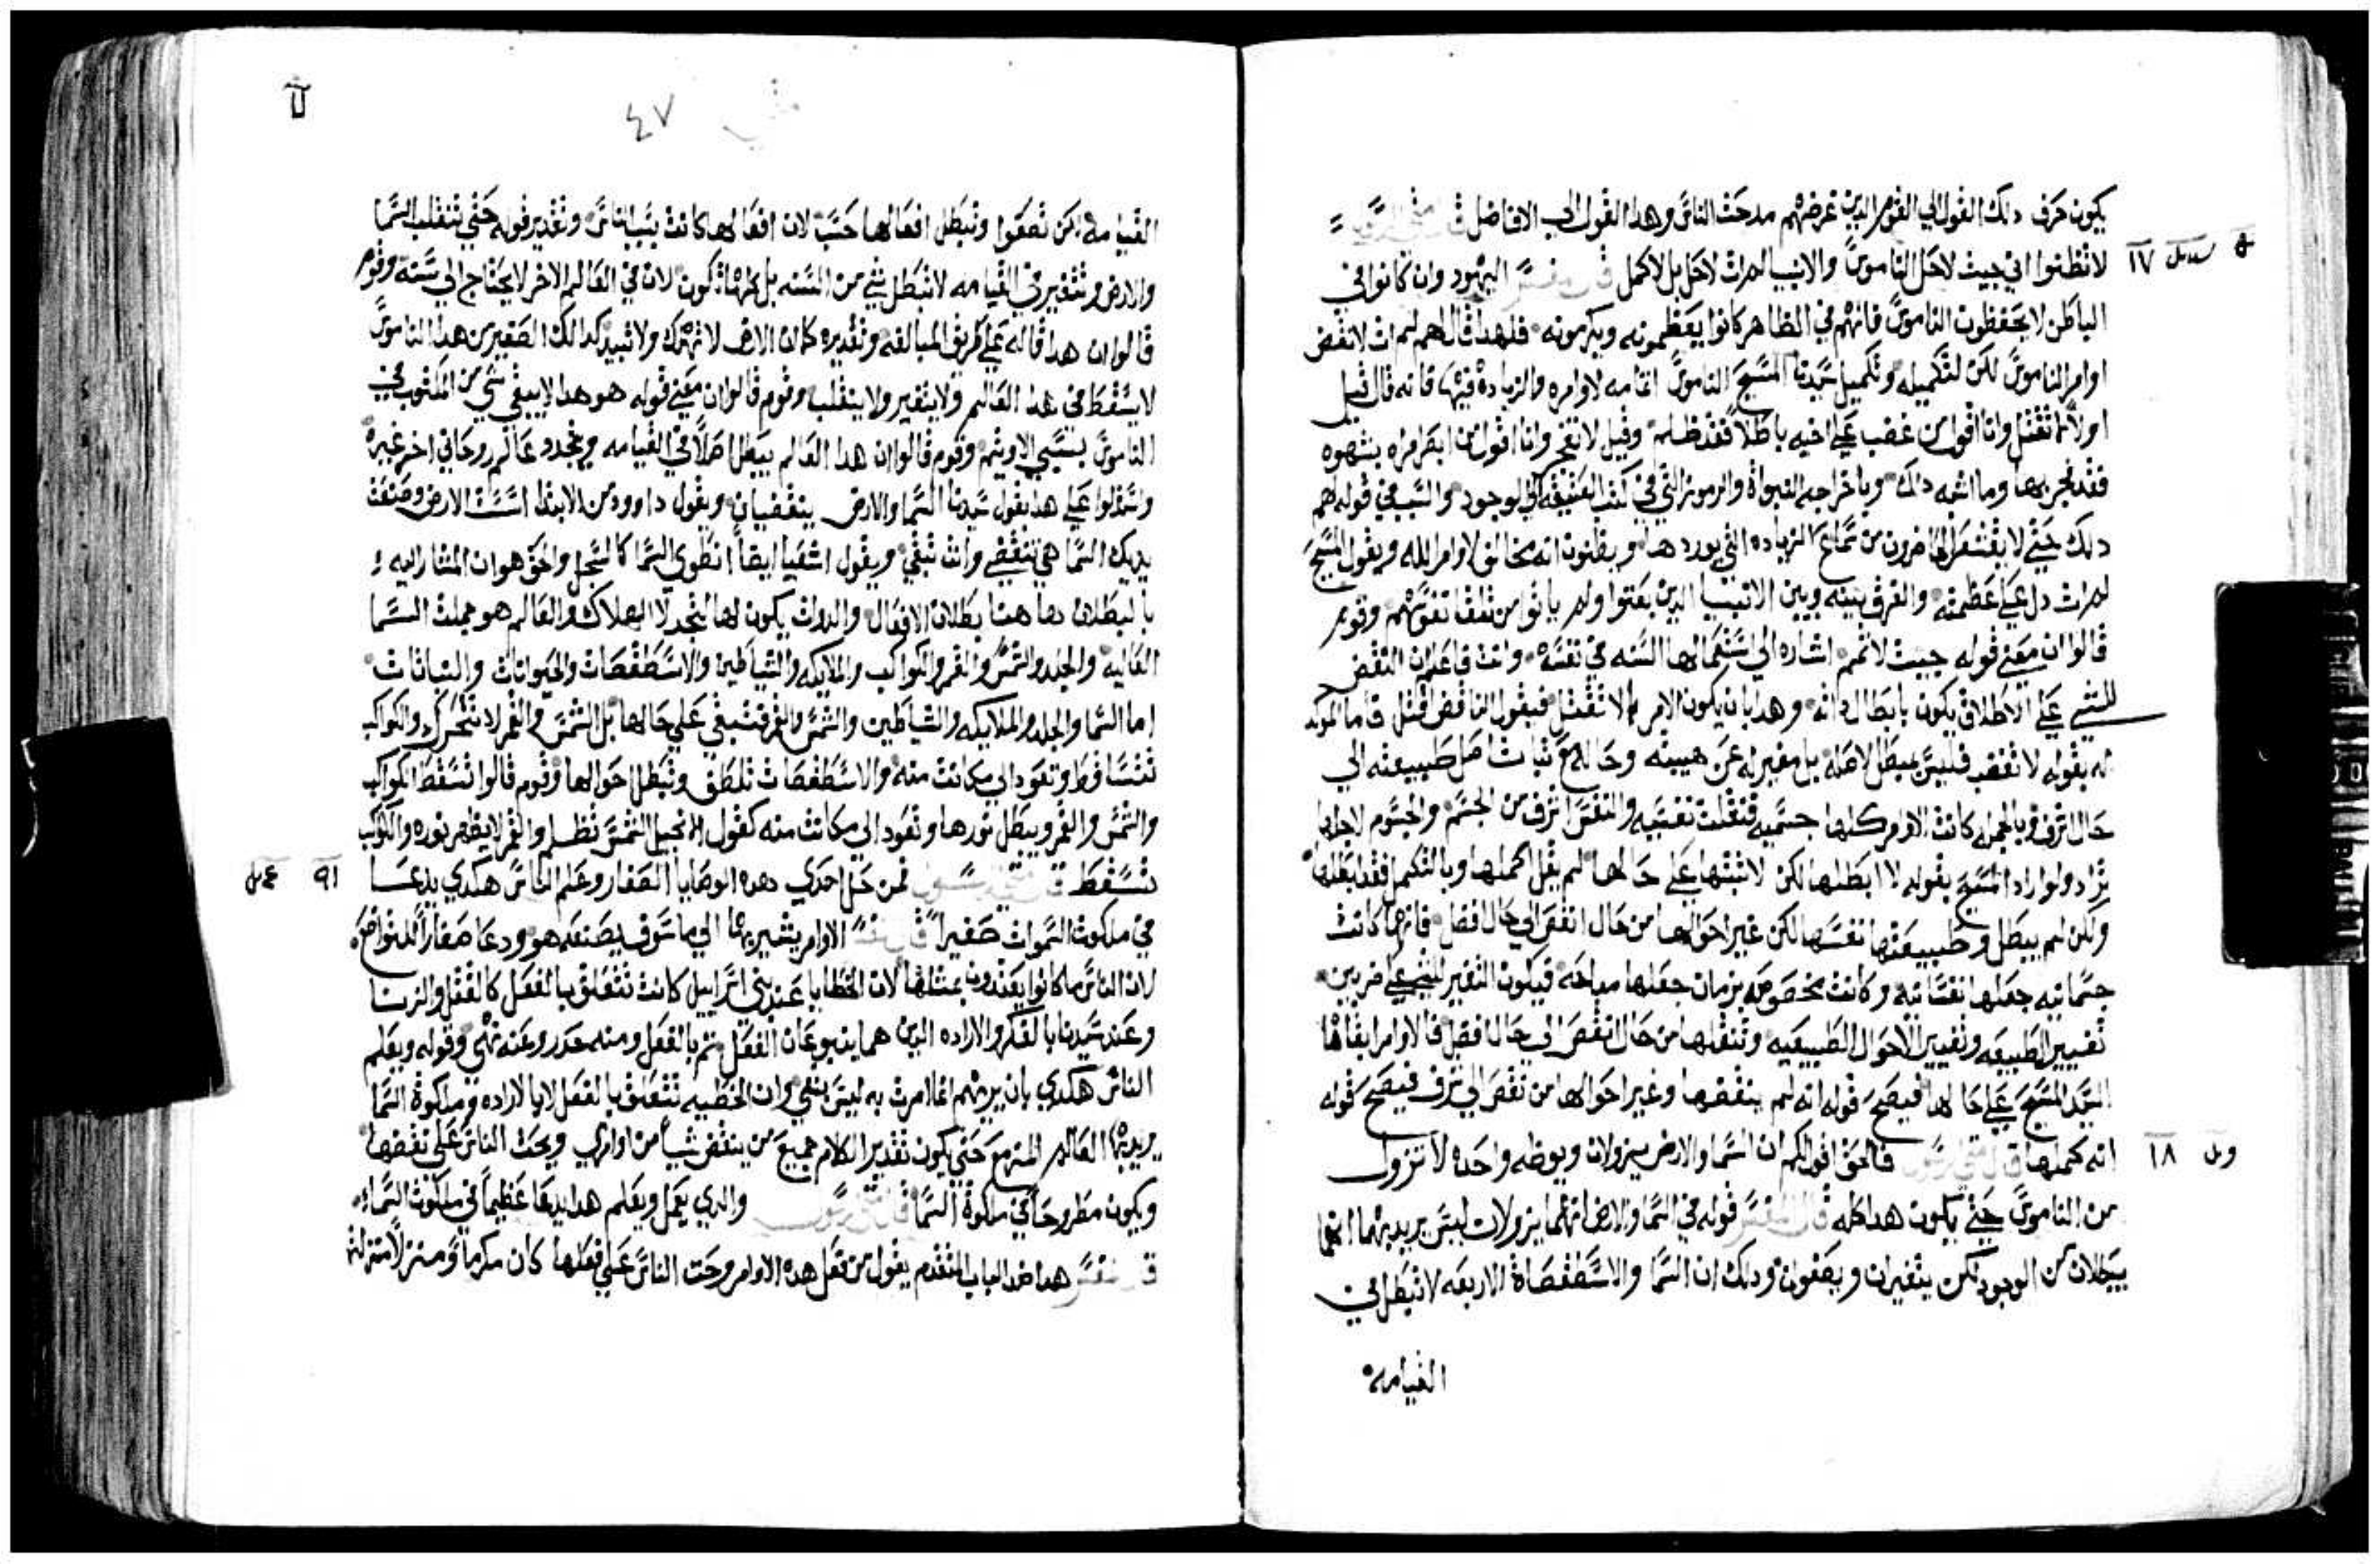 يكون حرف دلك القول الي القوم الدين غرضهم مدحت الناس وهدا القول الي الافاضل قال متي الرسول
لا تظنوا اني جيت لاحل الناموس والانبيا لم ات لاحل بل لاكمل قال المفسر اليهود وان كانوا في
الباطن لا يحفظون الناموس فانهم في الظاهر كانوا يعظمونه ويكرمونه فلهدا قال لهم لم ات لانقض
اوامر الناموس لكن لتكميله وتكميل سيدنا المسيح الناموس اتمامه لاوامره والزياده فيها فانه قال قيل
اولا لا تقتل وانا اقول من غضب علي اخيه باطلا فقد ظلم وقيل لا تفجر وانا اقول من ابصر امراه بشهوه
فقد فجر بها وما اشبه دلك وباخراجه النبواة والرموز التي في كتب العتيقه الي الوجود والسبب في قوله لهم
دلك حتي لا يقشعر الحاضرون من سماع الزياده التي يوردها ويظنون انه مخالف لاوامر الله وبقول المسيح
لم ات دل علي عظمته والفرق بينه وبين الانبيا الدين بعتوا ولم ياتوا من تلقا نفوسهم وقوم
قالوا ان معني قوله جيت لاتمم اشاره الي استكمالها السنه في نفسه وانت فاعلم ان النقض
للشي علي الاطلاق يكون بابطال داته وهدا بان يكون الامر لا تقتل فيقول الناقض اقتل فاما الموكد
له بقوله لا تغضب فليس مبطل لاصله بل مغير له عن هيبته وحاله مع ثبات اصل طبيعته الي
حال اشرف وبالجمله كانت الاوامر كلها جسميه فنقلت نفسيه والنفس اشرف من الجسم والجسوم لاجلها
تراد ولو اراد المسيح بقوله لا ابطلها لكن لاثبتها علي حالها لم يقل اكملها وبالتكمل فقد نقلها
ولكن لم يبطل طبيعتها نفسها لكن غير احوالها من حال انقص الي حال افضل فانها كانت
جسمانيه جعلها نفسانيه وكانت مخصوصه بزمان جعلها مباحه فيكون التغير للشي علي ضربين
تغيير الطبيعه وتغيير الاحوال الطبيعيه وتنقلها من حال انقص الي حال افضل فالاوامر ابقاها
السيد المسيح علي حالها فيصح قوله انه لم ينقضها وغير احوالها من نقص الي شرف فيصح قوله
انه كملها قال متي الرسول فالحق اقول لكم ان السما والارض يزولان ويوطه واحده لا تزول
من الناموس حتي يكون هدا كله قال المفسر قوله في السما والارض انهما يزولان ليس يريد بهما انهما
يبطلان من الوجود لكن يتغيران ويصفون ودلك ان السما والاسطقصاة الاربعه لا تبطل في
القيامه
٥ ١٧
١٨
٤٧
القيامه لكن تصفوا وتبطل افعالها حسب لان افعالها كانت بسبب الناس وتقدير قوله حتي تنقلب السما
والارض وتتغير في القيامه لا تبطل شي من السنه بل كلها تكون لان في العالم الاخر لا يحتاج الي سنه وقوم
قالوا ان هدا قاله علي طريق المبالغه وتقديره كما ان الارض لا تهلك ولا تبيد كدالك الصغير من هدا الناموس
لا يسقط في هدا العالم ولا يتغير ولا ينقلب وقوم قالوا ان معني قوله هو هدا لا يبقي شي من المكتوب في
الناموس بسببي الا ويتم وقوم قالوا ان هدا العالم يبطل اصلا في القيامه ويتجدد عالم روحاني اخر غيره
واستدلوا علي هدا بقول سيدنا السما والارض ينقضيان وبقول داوود من الابتدا اسست الارض وصنعت
يديك السما هي تنقضي وانت تبقي وبقول اشعيا ايضا تنطوي السما كالسجل والحق هو ان المشار اليه
بالبطلان هاهنا بطلان الافعال والدوات يكون لها التجدد لا الهلاك والعالم هو جملت السما
العاليه والجلد والشمس والقمر والكواكب والملايكه والشياطين والاسطقصات والحيوانات والنباتات
اما السما والجلد والملايكه والشياطين والشمس والقمر فتبقي علي حالها بل الشمس والقمر لا تتحرك والكواكب
تتساقط وتعود الي مكانت منه والاسطقصات تلطف وتبطل احوالها وقوم قالوا تسقط الكواكب
والشمس والقمر ويبطل نورها وتعود الي مكانت منه كقول الانجيل الشمس تظلم والقمر لا يظهر نوره والكواكب
تتسقط قال متي الرسول فمن حل احدي هده الوصايا الصغار وعلم الناس هكدي يدعا
في ملكوت السموات صغيرا قال المفسر الاوامر يشير بها الي ما سوف يصنعه هو ودعا صغارا للتواضع
لان الناس ما كانوا يعتدون بمثلها لان الخطايا عند بني اسراييل كانت تتعلق بالفعل كالقتل والزنا
وعند سيدنا بالفكر والاراده الدين هما ينبوعان الفعل يتم بالفعل ومنه حدر وعنه نهي وقوله ويعلم
الناس هكدي بان يريهم انما امرت به ليس بشي وان الخطيه تتعلق بالفعل لا بالاراده وملكوة السما
يريد بها العالم المزمع حتي يكون تقدير الكلام جميع من ينقض شيا من اوامري ويحت الناس علي نقضها
ويكون مطروحا في ملكوة السما قال متي الرسول والدي يعمل ويعلم هدا يدعا عظيما في ملكوت السما
قال المفسر هدا ضد الباب المتقدم يقول من فعل هده الاوامر وحت الناس علي فعلها كان مكرما ومنزلا منزلته
١٩